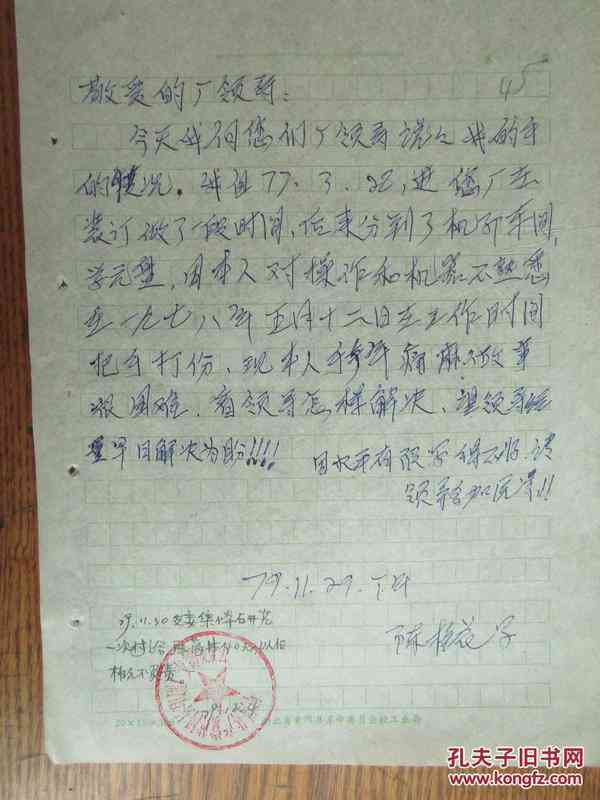 45
敬爱的厂领导:
今天我向您们厂领导谈谈我的手
的情况。我组77.3.22,进您厂在
装订做了一段时间,后来分到了机印车间,
学元盘,因本人对操作和机器不熟悉
在一九七八年五月十六日在工作时间
把手打伤,现本人手疼痛麻做事
很困难,看领导怎样解决,望领导
早日解决为盼!!!!
因水平有限写得不好,请
领导给加原谅!!
79.11.29.下午
陈桂花 写
79.11.30支委集体研究
一次
概不负责。
孔夫子旧书网
www.kongfz.com